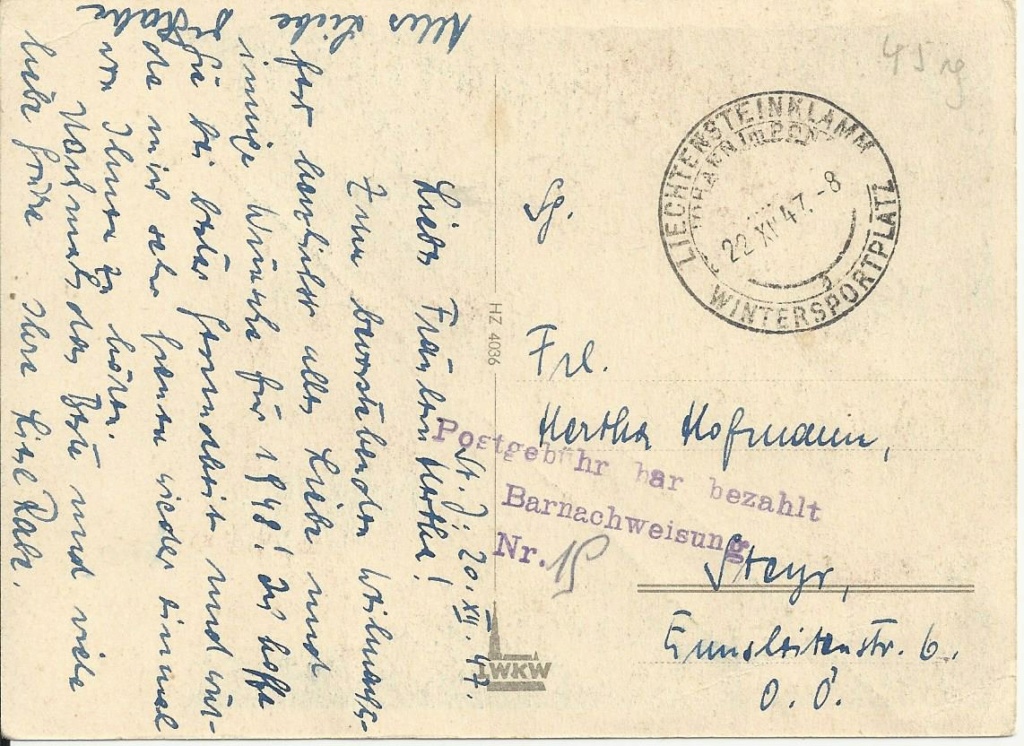 St. J; 20. XII. 47.
Liebes Fräulein Hertha!
Zum bevorstehenden Weihnachts-
fest herzlichst alles Liebe und
innige Wünsche für 1948! Ich hoffe
Sie bei bester Gesundheit und wür-
de mich sehr freuen wieder einmal
von Ihnen zu hören.
Nochmals das Beste und viele
liebe Grüße Ihre Liesl Rabe.
Alles Liebe
HZ 4036
WKW
45 rg
LIECHTENSTEINKLAMM
22 XII 47.-8
WINTERSPORTPLATZ
Sg.
Frl.
Hertha Hofmann,
Postgebühr bar bezahlt
Barnachweisung
Nr.
Steyr,
Ennsleitenstr. 6.
O. Ö.